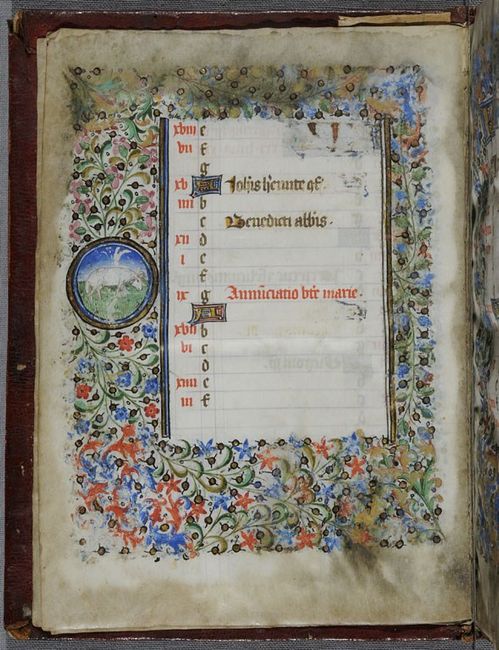 xviii e
vii f
g
xv A Joh'is
iiii b
c Benedicti abb'is.
xii d
i e
f
ix g Annu'ciatio b'te marie.
A
xvii b
vi c
d
xiiii e
iii f